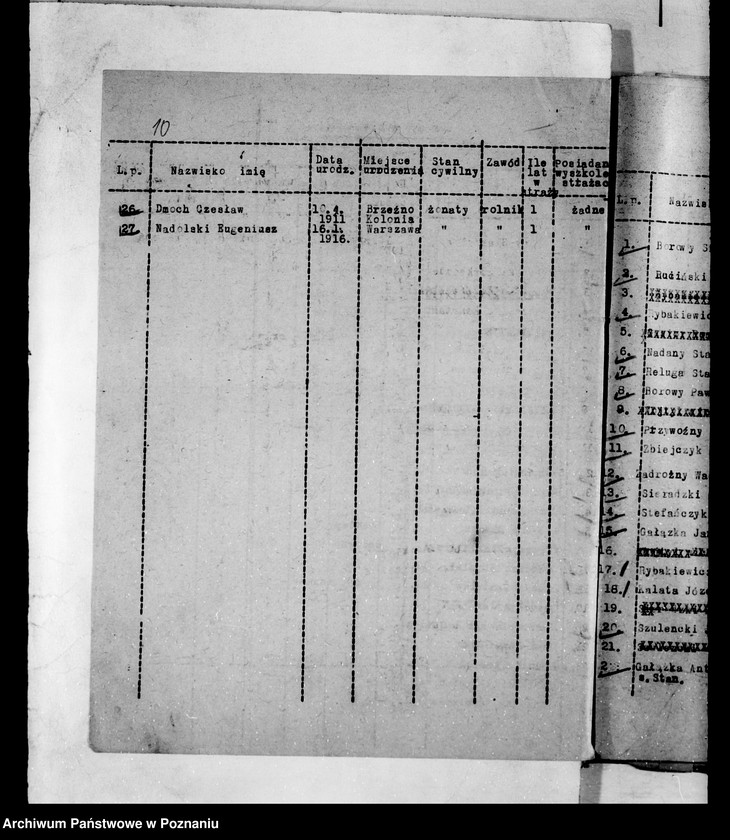 10
L.p. Nazwisko imię Data urodz. Miejsce urodzenia Stan cywilny Zawód Ile lat w straży Posiadan wyszkole strażac
26. Dmoch Czesław 1911 Brzeźno Kolonia żonaty rolnik 1 żadne
27. Nadolski Eugeniusz 16.1. 1916. Warszawa " " 1 "
L.p. Nazwis
1. Borowy S
2. Rudiński
3.
4. Rybakiewic
5.
6. Nadany Sta
7. Reluga Sta
8. Borowy Paw
9.
10. Przywoźny
11. Zbiejczyk
12. Zadrożny Wa
13. Sieradzki
14. Stefańczyk
15. Gałązka Ja
16.
17. Rybakiewic
18. Kalata Józe
19.
20. Szulencki
21.
2 Gałązka Ant
s. Stan.
Archiwum Państwowe w Poznaniu